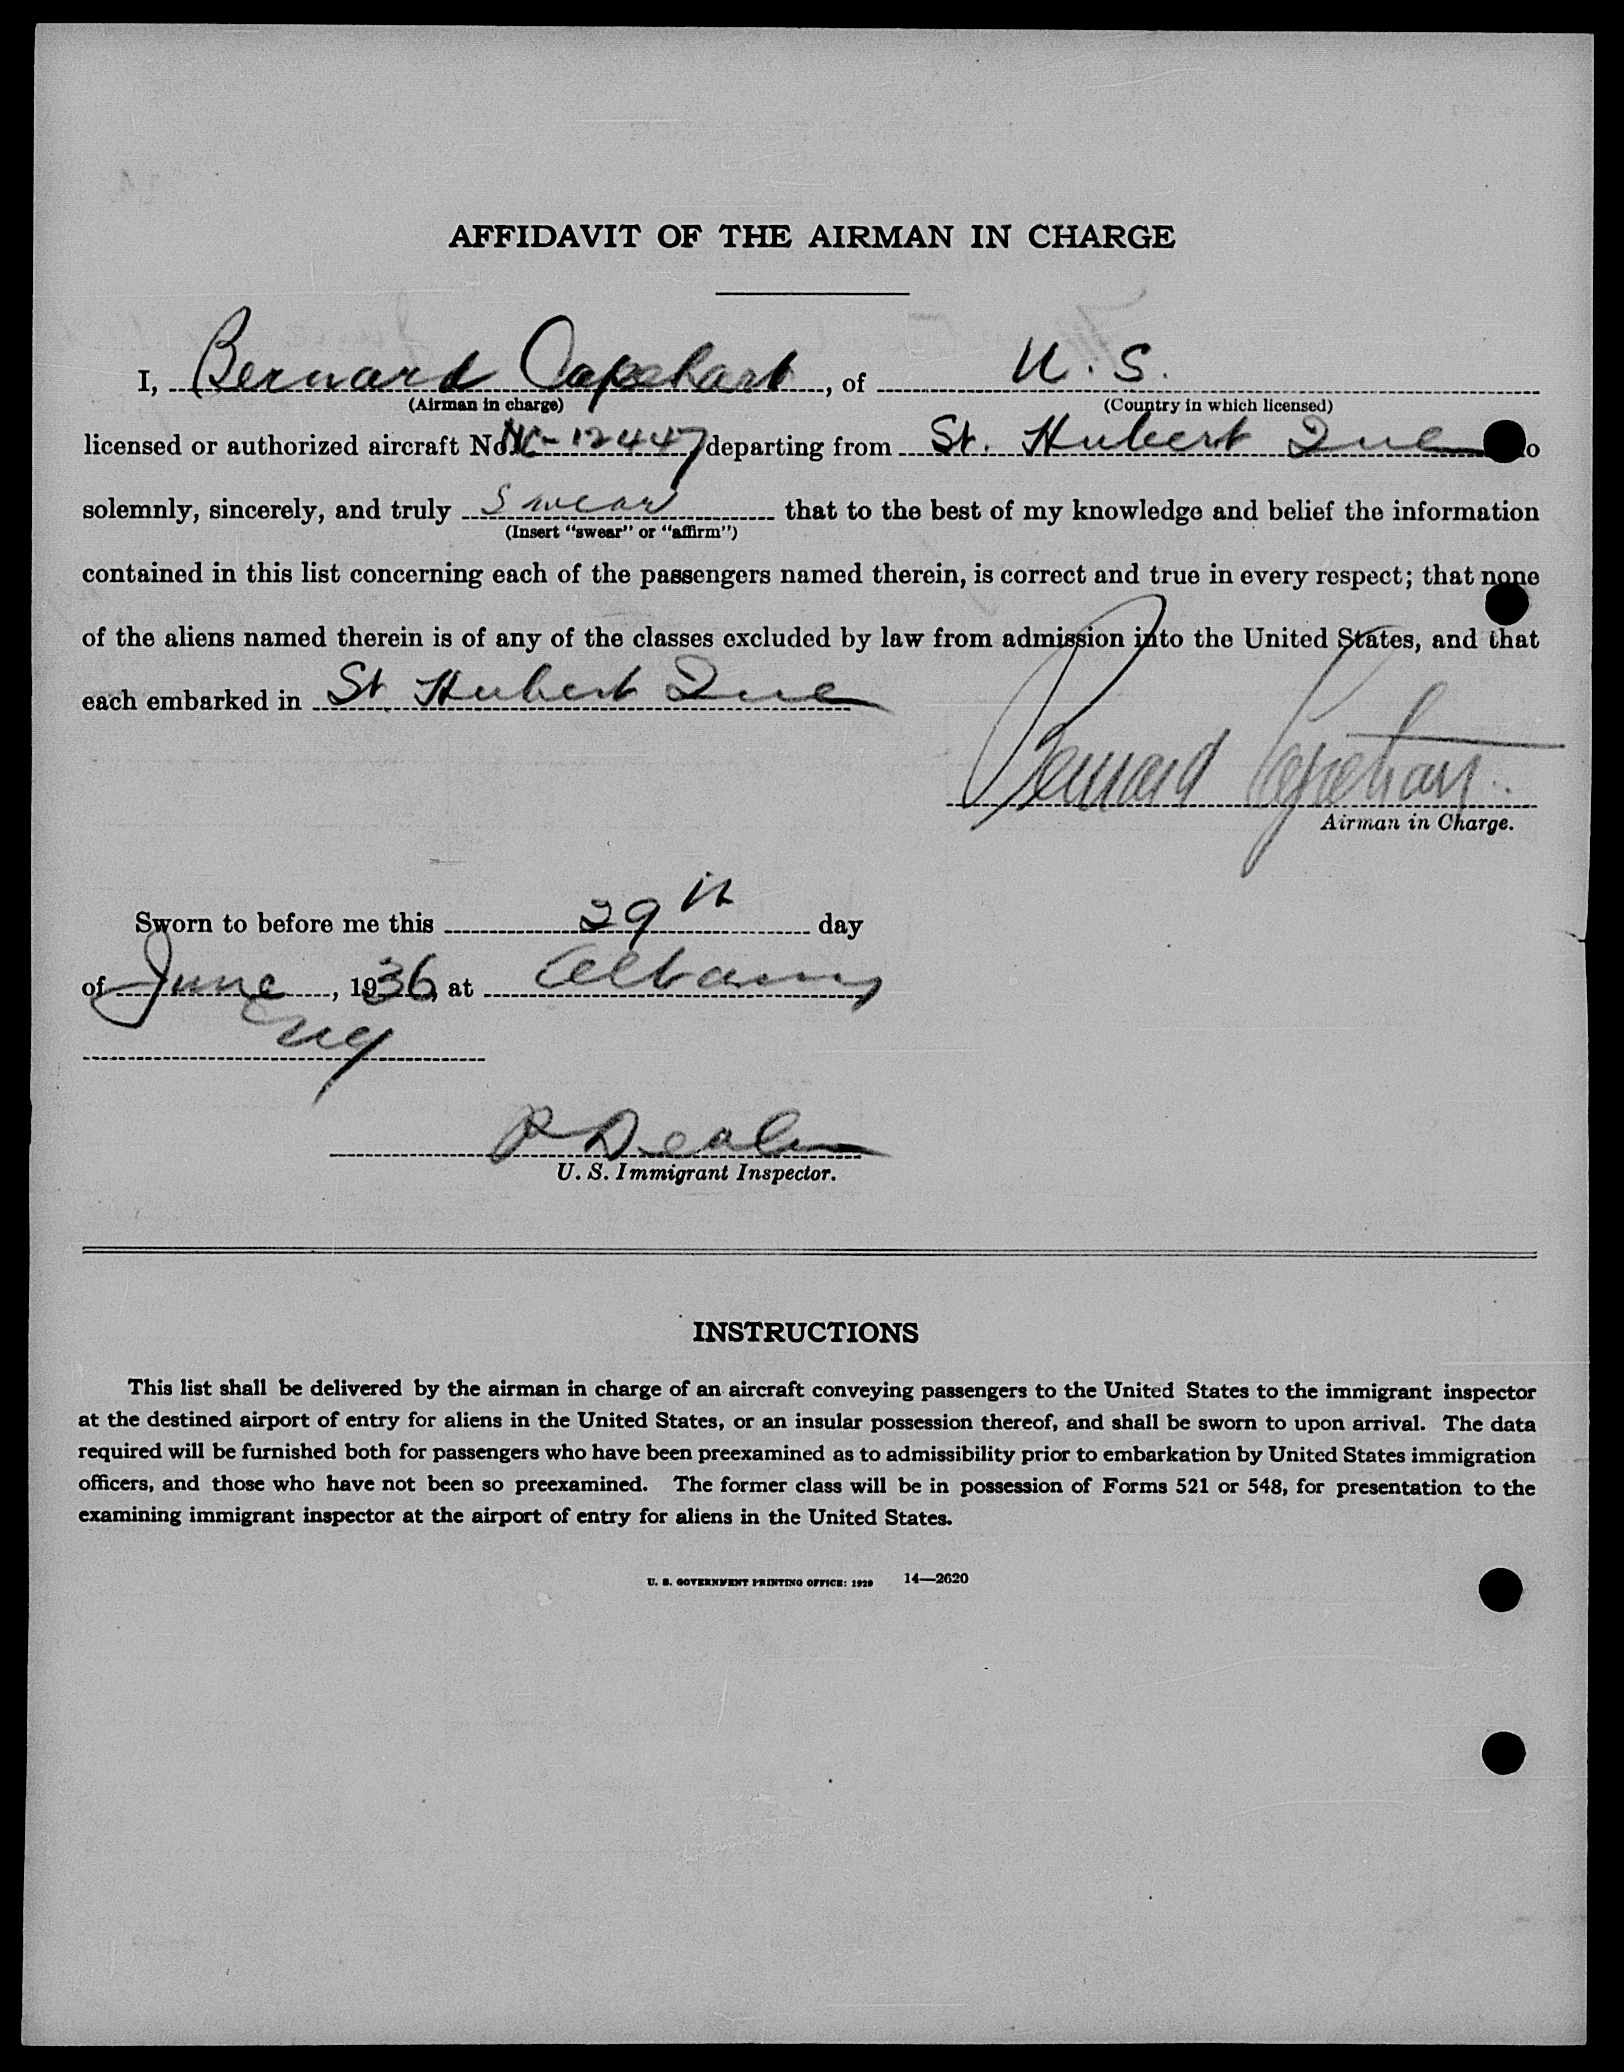 AFFIDAVIT OF THE AIRMAN IN CHARGE
I, Bernard Capehart, of U. S.
(Airman in charge) (Country in which licensed)
licensed or authorized aircraft No. NC-12447 departing from St. Hubert Que o
solemnly, sincerely, and truly swear that to the best of my knowledge and belief the information
(Insert "swear" or "affirm")
contained in this list concerning each of the passengers named therein, is correct and true in every respect; that none
of the aliens named therein is of any of the classes excluded by law from admission into the United States, and that
each embarked in St. Hubert Que
Bernard Capehart
Airman in Charge.
Sworn to before me this 29th day
of June, 1936, at Albany
NY
U. S. Immigrant Inspector.
INSTRUCTIONS
This list shall be delivered by the airman in charge of an aircraft conveying passengers to the United States to the immigrant inspector
at the destined airport of entry for aliens in the United States, or an insular possession thereof, and shall be sworn to upon arrival. The data
required will be furnished both for passengers who have been preexamined as to admissibility prior to embarkation by United States immigration
officers, and those who have not been so preexamined. The former class will be in possession of Forms 521 or 548, for presentation to the
examining immigrant inspector at the airport of entry for aliens in the United States.
U. S. GOVERNMENT PRINTING OFFICE: 1929 14—2620